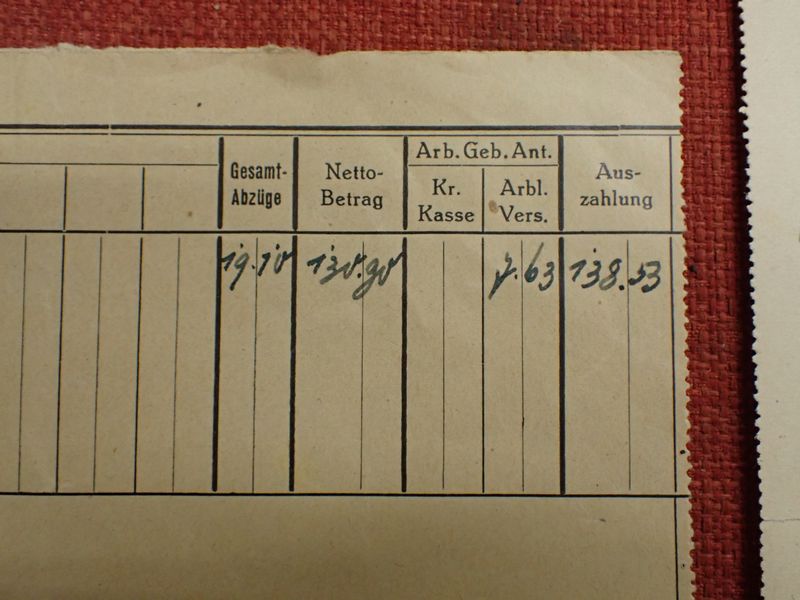 Gesamt-
Abzüge
Netto-
Betrag
Arb. Geb. Ant.
Kr.
Kasse
Arbl.
Vers.
Aus-
zahlung
19.10 130.90 7.63 138.53